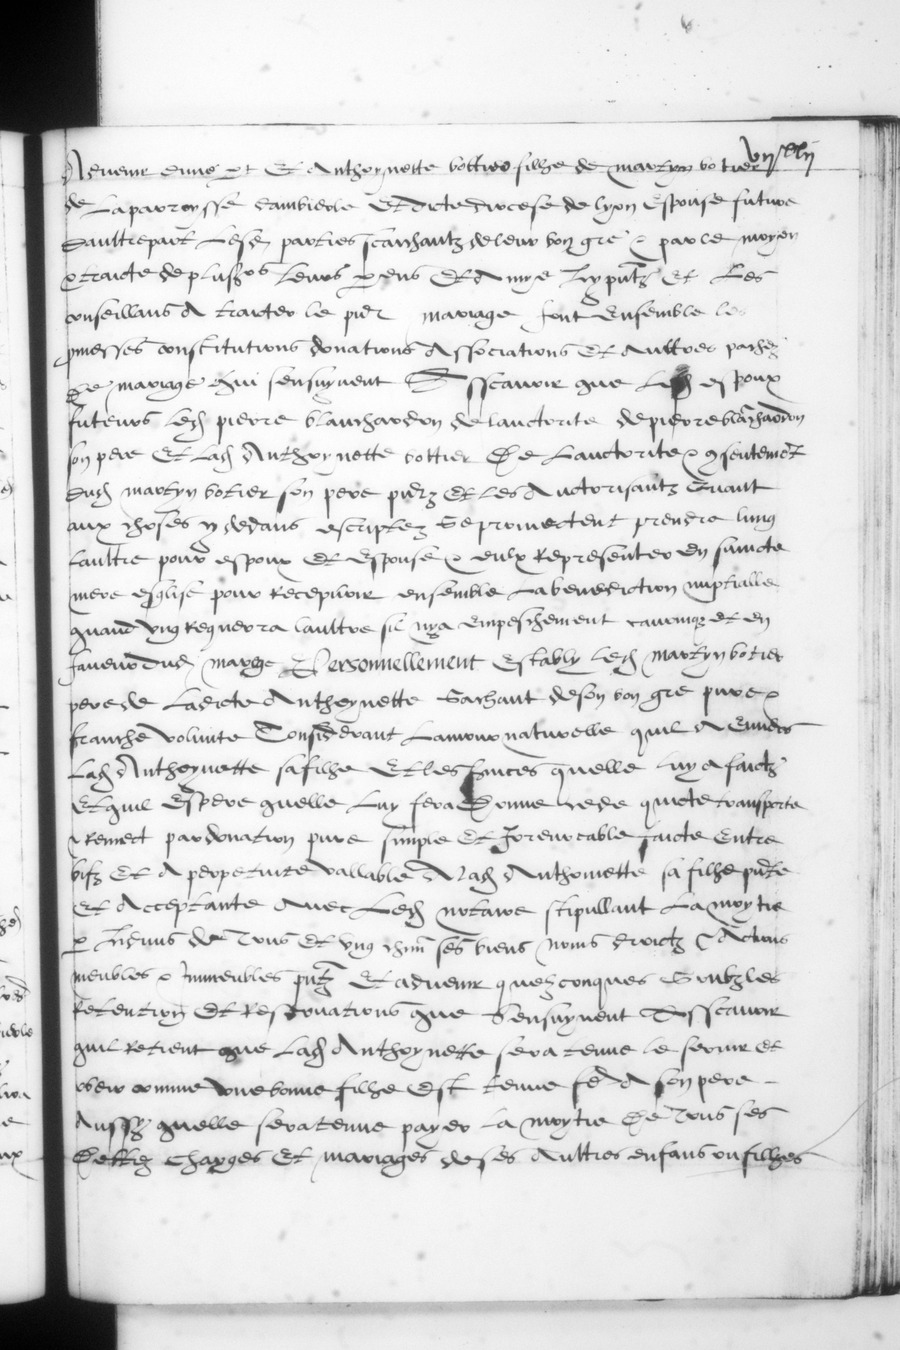 Advenir d'une part Et Anthoynette bottier filhe de martyn botier
de La parroysse dambierle Et dicte diocese de lyon Espouse future
daultre part Lesd parties scaichantz de leur bon gre & par le moyen
& traicte de plusrs leurs parens Et Amys Icy pntz Et Les
conseillans A traicter le pnt mariage font Ensemble les
promesses constitutions donations Associations Et Aultres paches
De mariage Qui sensuyvent Asscavoir que Les espoux
futeurs led pierre blanchardon de lauctorite de pierre blanchardon
son pere Et Lad Anthoynette bottier De Lauctorite & consentement
dud martyn botier son pere pntz Et les Auctorisantz Quant
aux choses cy dedans escriptes Se promectent prendre lung
Laultre pour espoux Et Espouse & eulx Representer En saincte
mere esglise pour Recepvoir ensemble La benediction nuptialle
quand Ung Requerra laultre sil nya Empeschement canonique et En
faveur dud mariage Personnellement Estably led martyn botier
pere de Ladicte Anthoynette Sachant de son bon gre pure &
franche volunte Considerant Lamour naturelle quil A Envers
Lad Anthoynette sa filhe Et les services quelle luy a faictz
Et quil Espere quelle Luy fera Donne cede quicte transporte
& Remect par donation pure simple Et Irrevocable faicte Entre
vifz Et A perpetuite vallable A Lad Anthoinette sa filhe pnte
Et Acceptante Avec Led notaire stipullant La moytie
par Indivis de Tous Et Ung chun ses biens noms droictz & Actions
meubles & Immeubles pntz Et advenir quelzconques Soubz les
Retention Et Reservations que Sensuyvent Asscavoir
quil Retient que Lad Anthoynette sera tenue le servir Et
obeir comme Une bonne filhe Est tenue fe A son pere
Aussy quelle sera tenue payer La moytie De Tous ses
Debtes charges Et mariages de ses Aultres enfans ou filhes